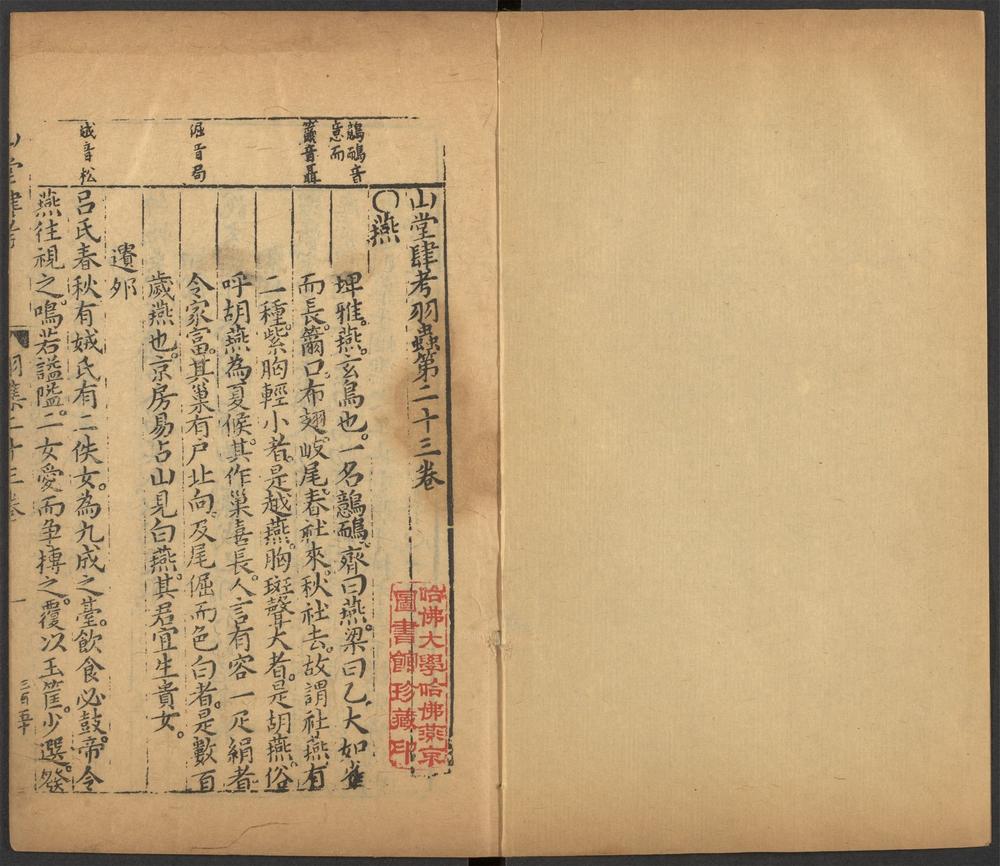 山堂肆考羽蟲第二十三卷
〇燕
埤雅。燕。玄鳥也。一名鷾鴯。齊曰燕。梁曰乙。大如雀
而長。籋口。布翅。岐尾。春社來。秋社去。故謂社燕。有
二種。紫胸輕小者。是越燕。胸斑聲大者。是胡燕。俗
呼胡燕為夏候。其作巢喜長。人言有容一疋絹者
令家富。其巢有戶北向。及尾倔而色白者。是數百
歲燕也。京房易占山見白燕。其君宜生貴女。
遺卵
呂氏春秋有娀氏有二佚女。為九成之臺。飲食必鼓。帝令
燕往視之。鳴若謚隘。二女愛而爭摶之。覆以玉筐。少選。發
鷾鴯音
意而
籋音聶
淈音局
娀音松
山堂肆考
羽集二十三卷
一
三百五十
哈佛大學哈佛燕京
圖書館珍藏印